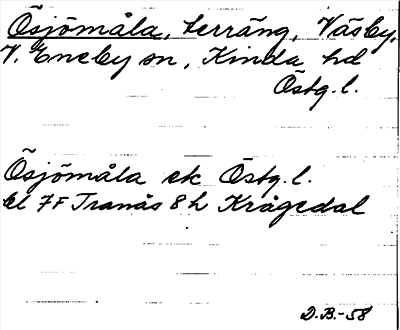 Ösjömåla, terräng, Väsby,
V. Eneby sn, Kinda hd
Östg.l.
Ösjömåla ek Östg.l.
bl 7F Tranås 8h Krågedal
D.B.-58